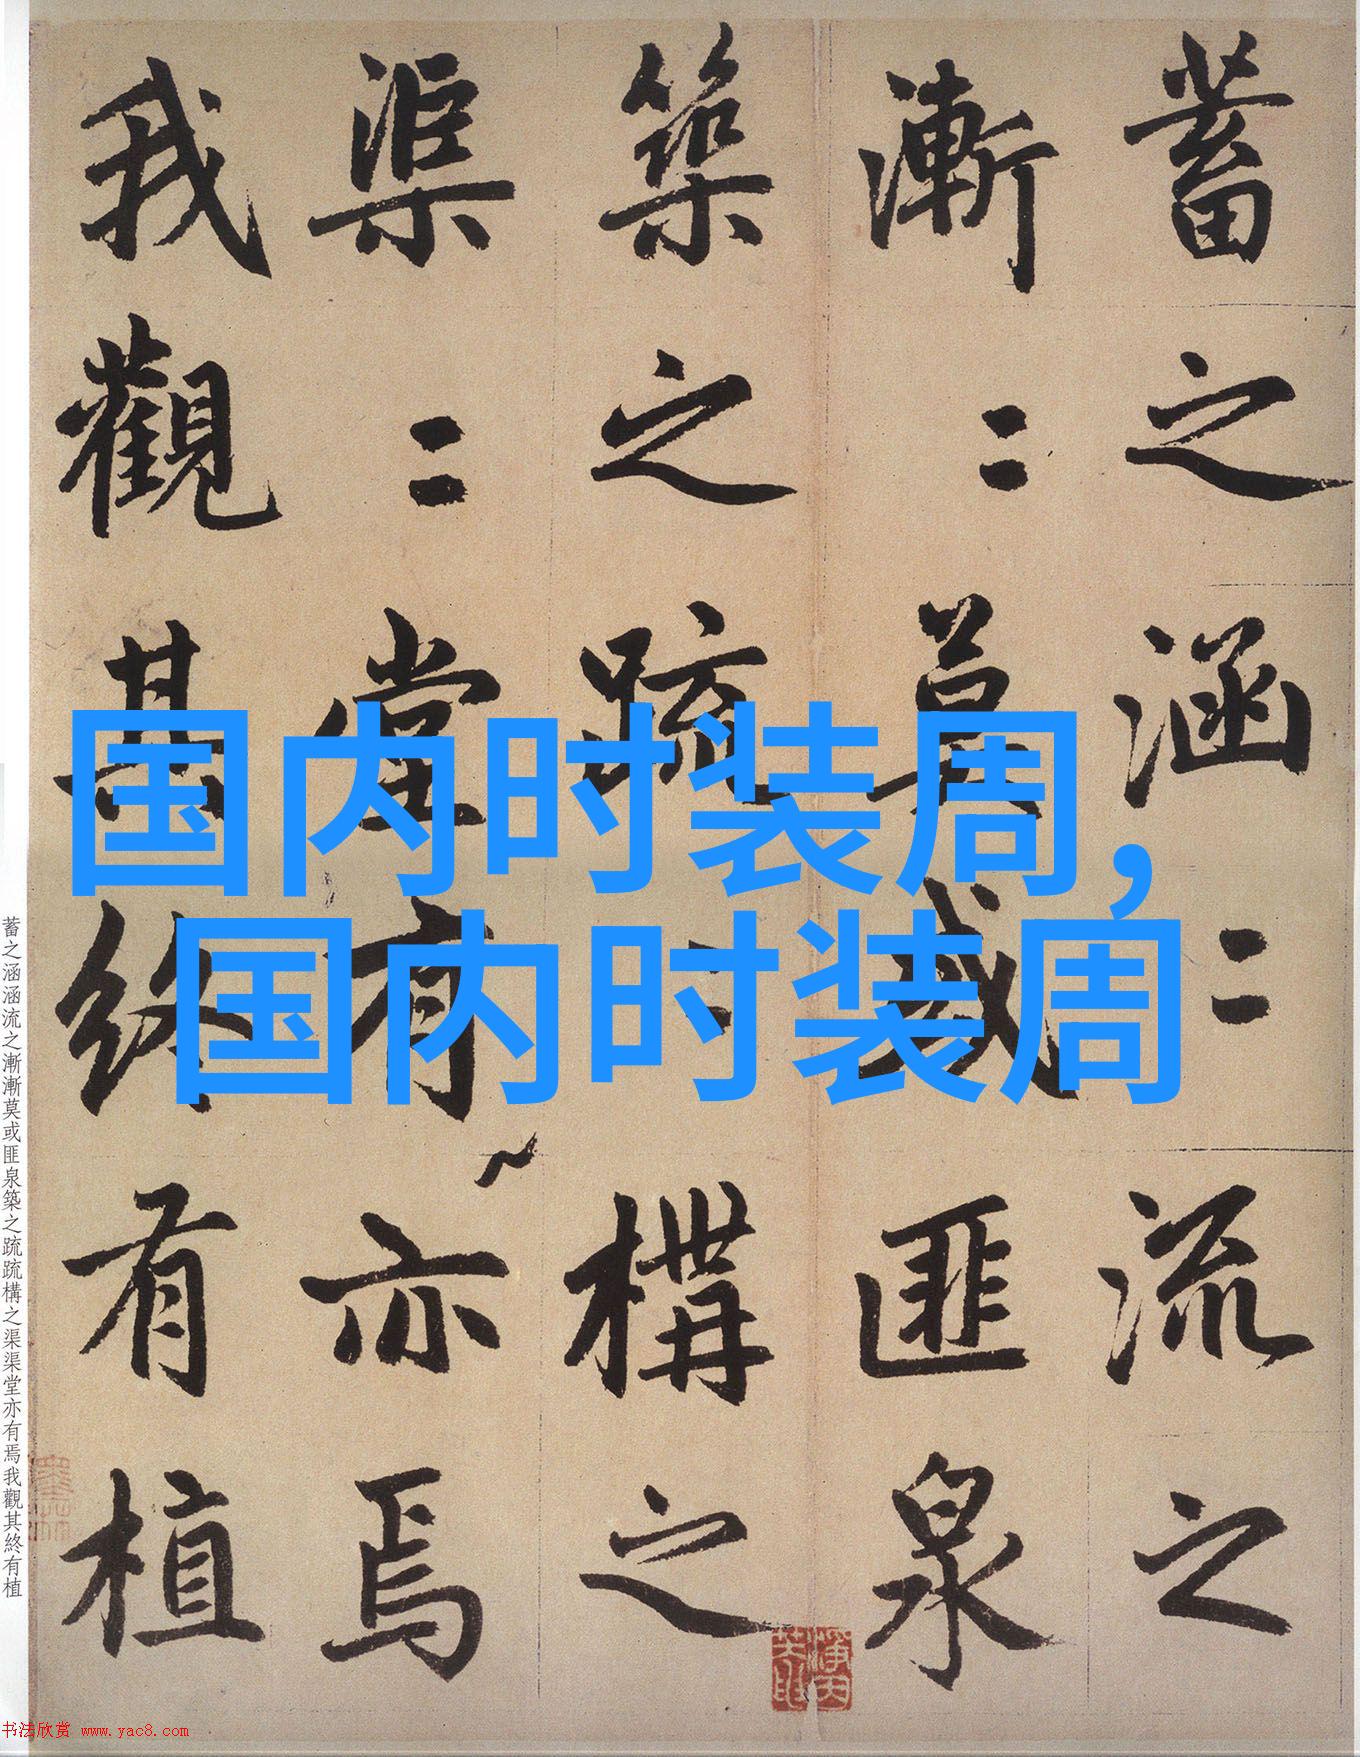 蓄之涵〻流之
漸〻莫或匪泉
築之疏〻構之
渠〻堂有亦焉
我觀其終有植
国内时装周,
国内时装周
蓄之涵涵流之漸漸莫或匪泉築之疏疏構之渠渠堂亦有焉我觀其終有植
书法欣赏 www.yac8.com